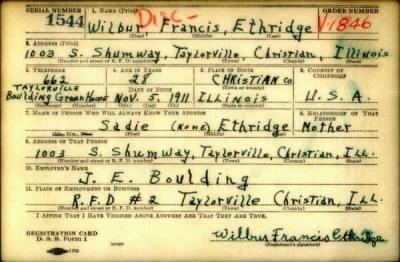 SERIAL NUMBER 1. NAME (Print) ORDER NUMBER
1544 Wilbur Francis, Ethridge Disc- V-1846
(First) (Middle) (Last)
2. ADDRESS (Print)
1003 S. Shumway, Taylorville, Christian, Illinois
(Number and street or R. F. D. number) (Town) (County) (State)
3. TELEPHONE 4. AGE IN YEARS 5. PLACE OF BIRTH 6. COUNTRY OF CITIZENSHIP
662 28 CHRISTIAN Co
TAYLORVILLE DATE OF BIRTH (Town or county)
Boulding Green House Nov. 5, 1911 ILLINOIS U.S.A.
(Mo.) (Day) (Yr.) (State or country)
7. NAME OF PERSON WHO WILL ALWAYS KNOW YOUR ADDRESS 8. RELATIONSHIP OF THAT PERSON
Sadie (NONE) Ethridge Mother
(Mr., Mrs., Miss) (First) (Middle) (Last)
9. ADDRESS OF THAT PERSON
1003 S. Shumway, Taylorville, Christian, Ill.
(Number and street or R. F. D. number) (Town) (County) (State)
10. EMPLOYER'S NAME
J. E. Boulding
11. PLACE OF EMPLOYMENT OR BUSINESS
R.F.D #2 Taylorville Christian, Ill.
(Number and street or R. F. D. number) (Town) (County) (State)
I AFFIRM THAT I HAVE VERIFIED ABOVE ANSWERS AND THAT THEY ARE TRUE.
REGISTRATION CARD
D. S. S. Form 1 Wilbur Francis Ethridge
(Registrant's signature)